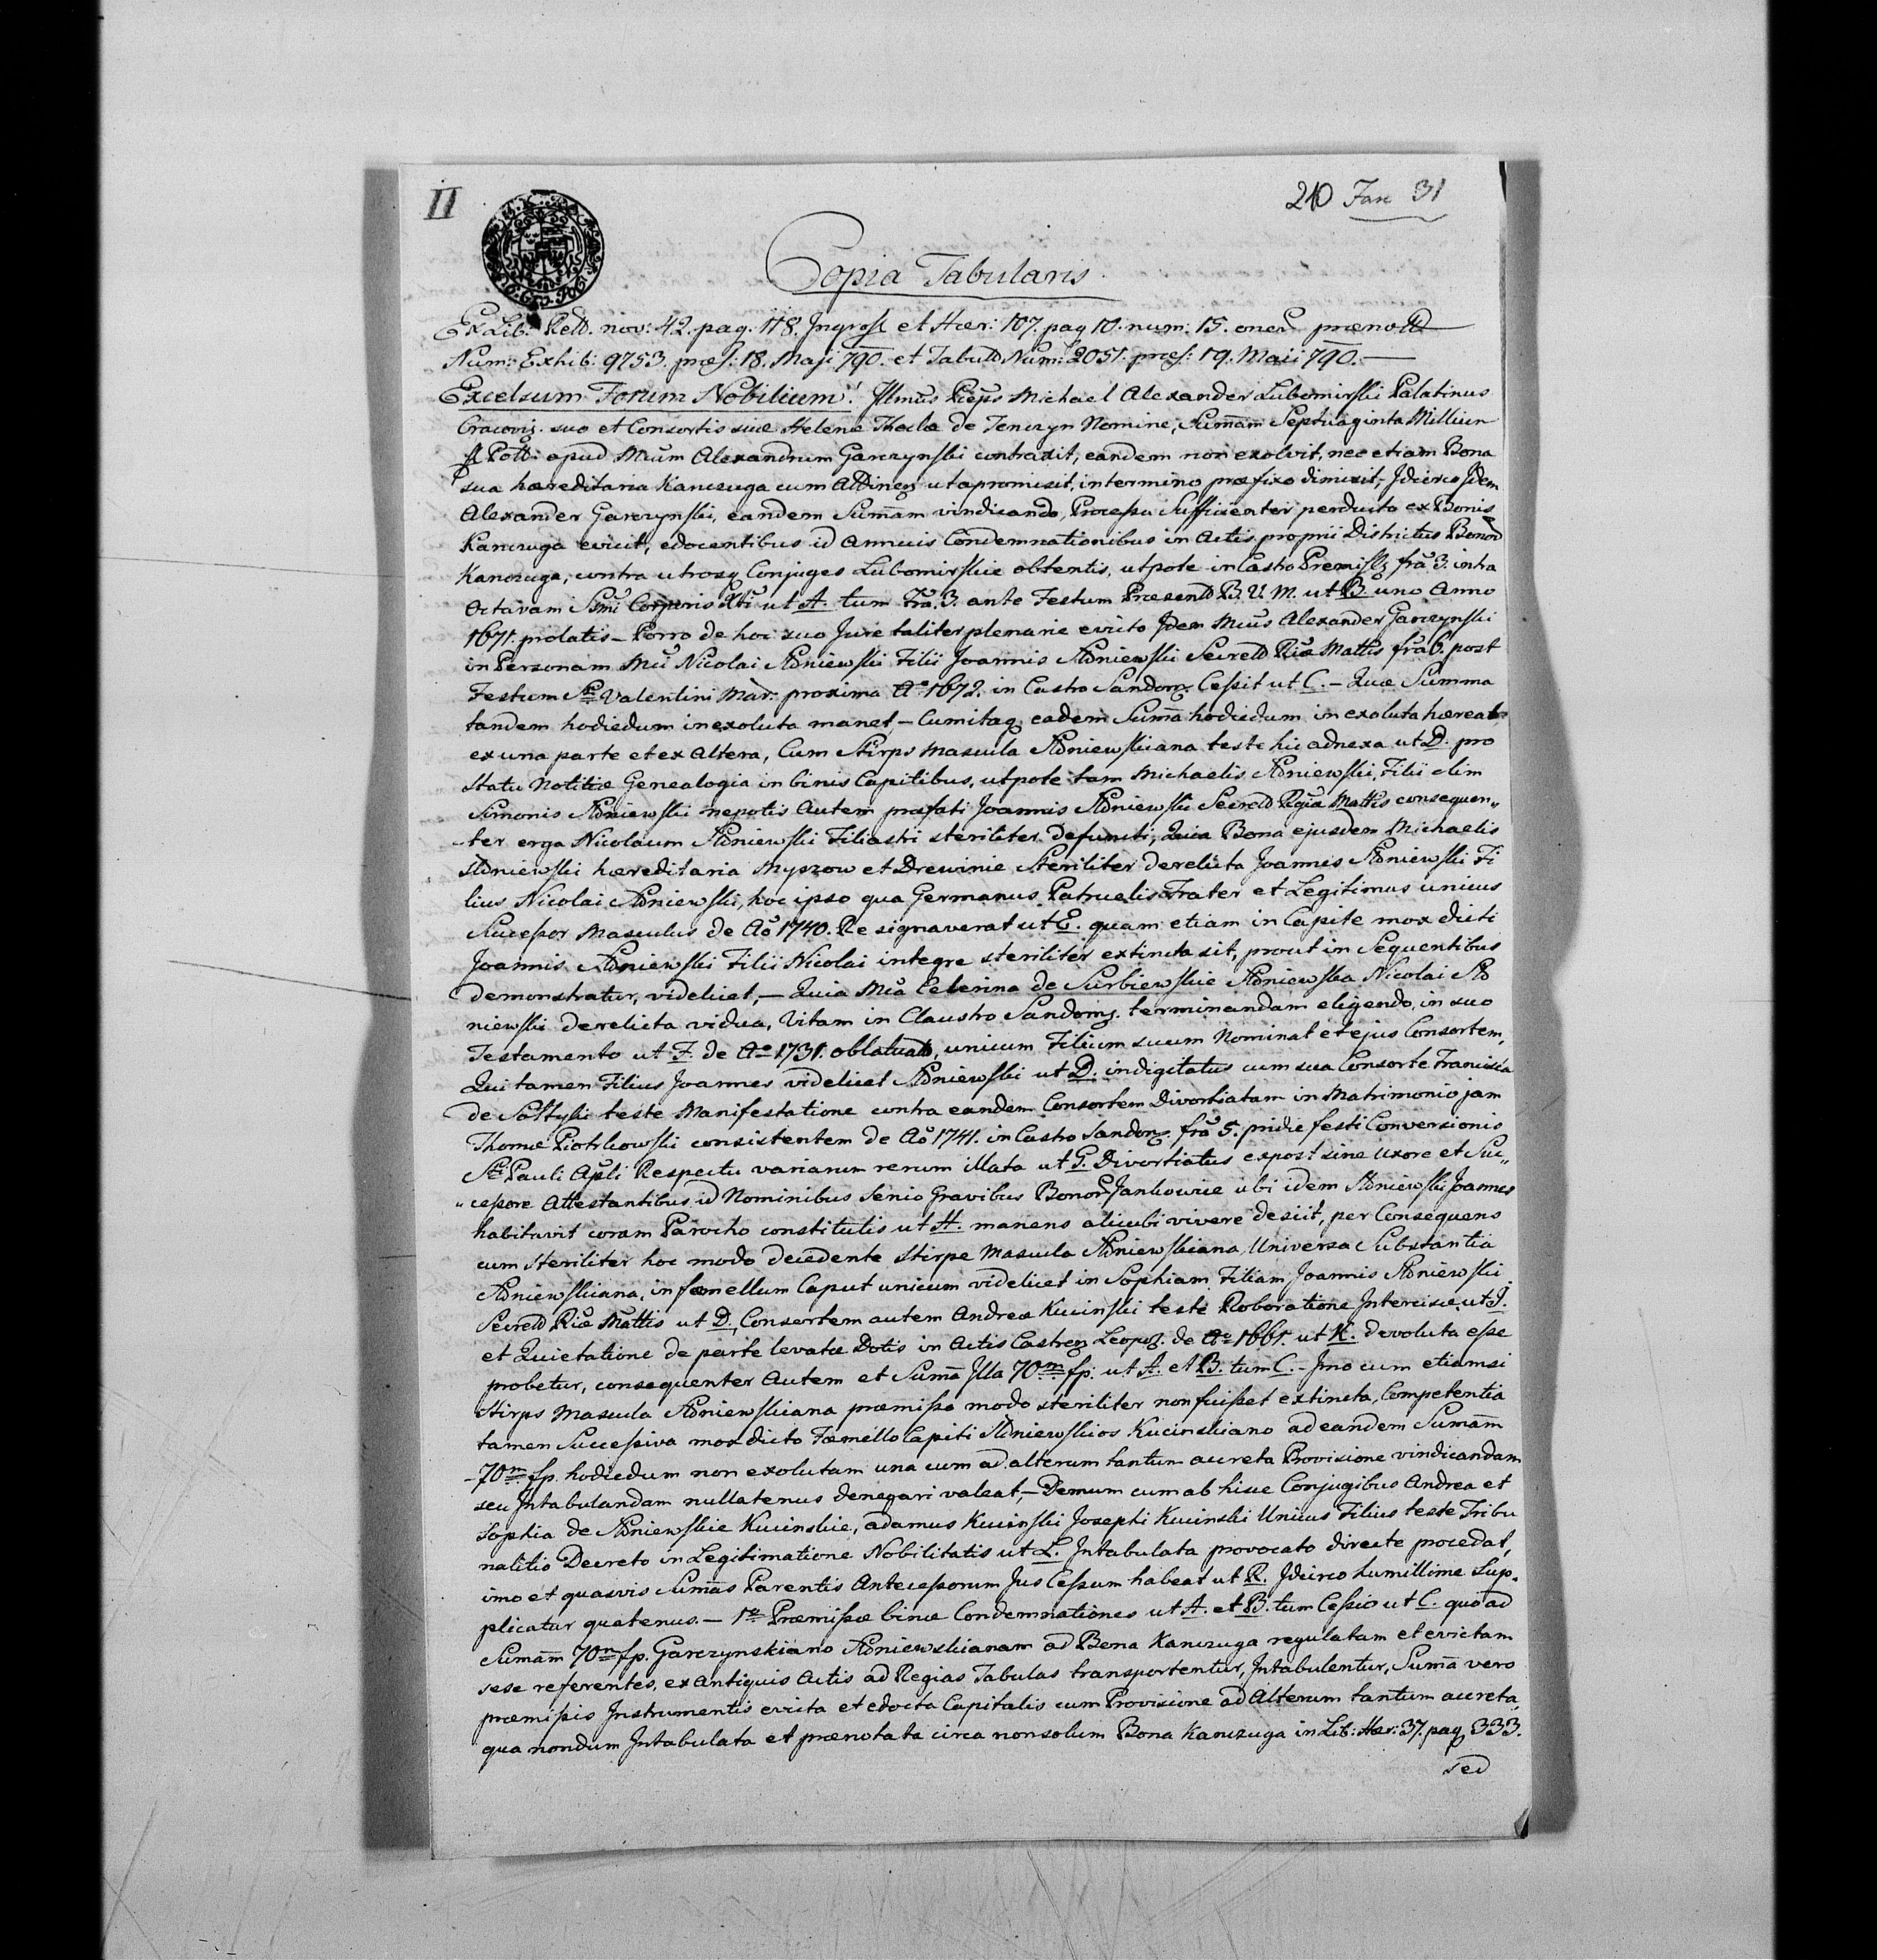 II
210 Fasc 31
Copia Tabularis.
Ex Lib: Relt. nov: 42. pag. 118. Ingross et Haer: 107. pag 10. num: 15. oner. praenott
Num: Exhib: 9753. praes: 18. Maji 790. et Tabult Num: 2051. praes: 19. Maii 790.—
Excelsum Forum Nobilium! Illmus Pceps Michael Alexander Lubomirski Palatinus
Cracovis. suo et Consortis suae Helenae Theclae de Tenczyn Nomine, Sumam Septuaginta Millium
fl Poll: apud Mcum Alexandrum Garczynski contraxit, eandem non exolvit, nec etiam Bona
sua haereditaria Kanczuga cum Attinen uta promisit, in termino praefixo dimisit, Idcirco Idem
Alexander Garczynski, eandem Sumam vindicando, Processu Sufficienter perducto ex Bonis
Kanczuga evicit, edocentibus id Annuis Condemnationibus in Actis proprii Districtus Bonor
Kanczuga, contra utrosq Conjuges Lubomirskie obtentis, utpote in Castro Premisl. fra 3. intra
Octavam Ssmi Corporis Xti ut A. tum Fra. 3. ante Festum Praesent B. V. M. ut B. uno Anno
1671. prolatis – Porro de hoc suo Jure taliter plenarie evicto Idem Mcus Alexander Garczynski
in Personam Mci Nicolai Stoniewski Filii Joannis Stoniewski Secrett Riae Mattis fra 6. post
Festum Sti Valentini Mar: proxima Ao 1672. in Castro Sandom. Cessit ut C. – Quae Summa
tandem hodiedum inexoluta manet, – Cumitaq eadem Suma hodiedum inexoluta haereat
ex una parte et ex Altera, Cum Stirps mascula Stoniewskiana teste hic adnexa ut D. pro
Statu Notitiae Genealogia in binis Capitibus, utpote tam Michaelis Stoniewski, Filii olim
Simonis Stoniewski nepotis Autem praefati Joannis Stoniewski Secrett Regiae Mattis consequen„
ter erga Nicolaum Stoniewski Filiastri steriliter defuncti, Quia Bona ejusdem Michaelis
Stoniewski haereditaria Myszow et Drewinie Steriliter derelicta Joannes Stoniewski Fi
lius Nicolai Stoniewski, hoc ipso qua Germanus Patruelis Frater et Legitimus unicus
Successor Masculus de Ao 1740. Resignaverat ut E. quam etiam in Capite mox dicti
Joannis Stoniewski Filii Nicolai integre steriliter extincta sit, prout in Sequentibus
demonstratur, videlicet, — Quia Mca Ceterina de Surbiewskie Stoniewska Nicolai Sto
niewski derelicta vidua, Vitam in Claustro Sandom. terminandam eligendo, in suo
Testamento ut F. de Ao 1731. oblatuato, unicum Filium suum Nominat et ejus Consortem,
Qui tamen Filius Joannes videlicet Stoniewski ut D. indigitatus cum sua Consorte Francisca
de Sołtyki teste Manifestatione contra eandem Consortem Divortiatam in Matrimonio jam
Thomae Piotrkowski consistentem de Ao 1741. in Castro Sandom. fra 5. pridie festi Conversionis
Sti Pauli Apli Respectu variarum rerum illata ut G. Divortiatus expost sine Uxore et Suc„
„cessore Attestantibus id Nominibus Senio Gravibus Bonor Jankowice ubi idem Stoniewski Joannes
habitavit coram Parocho constitutis ut H. manens alicubi vivere desiit, per Consequens
cum steriliter hoc modo decedente Stirpe Mascula Stoniewskiana, Universa Substantia
Stoniewskiana, in foemellum Caput unicum videlicet in Sophiam Filiam Joannis Stoniewski
Secrett Riae Mattis ut D., Consortem autem Andreae Kucinski teste Roboratione Intercisae ut J.
et Quietatione de parte levatae Dotis in Actis Castren Leopol. de Ao 1661. ut K. devoluta esse
probetur, consequenter Autem et Suma Illa 70m fp. ut A. et B. tum C. – Imo cum etiamsi
Stirps Mascula Stoniewskiana praemisso modo steriliter non fuisset extincta, Competentia
tamen Successiva mox dicto Foemello Capiti Stoniewskios Kucinskiano ad eandem Sumam
70m fp. hodiedum non exolutam una cum ad alterum tantum accreta Provisione vindicandam
seu Intabulandam nullatenus denegari valeat, – Demum cum ab hisce Conjugibus Andrea et
Sophia de Stoniewskie Kucinskie, Adamus Kucinski Josephi Kucinski Unicus Filius teste Tribu
nalitio Decreto in Legitimatione Nobilitatis ut L. Intabulata provocato directe procedat,
imo et quasvis Sumas Parentis Antecessorum Jus Cessum habeat ut R. Idcirco humillime Sup„
plicatur quatenus. — 1o Praemissae binae Condemnationes ut A. et B. tum Cessio ut C. quoad
Sumam 70m fp. Garczynskiano Stoniewskianam ad Bona Kanczuga regulatam et evictam
sese referentes, ex Antiquis Actis ad Regias Tabulas transportentur, Intabulentur, Suma vero
praemissis Instrumentis evicta et edocta Capitalis cum Provisione ad Alterum tantum accreta,
qua nondum Intabulata et praenotata circa non solum Bona Kanczuga in Lib: Haer: 37. pag 333.
sed